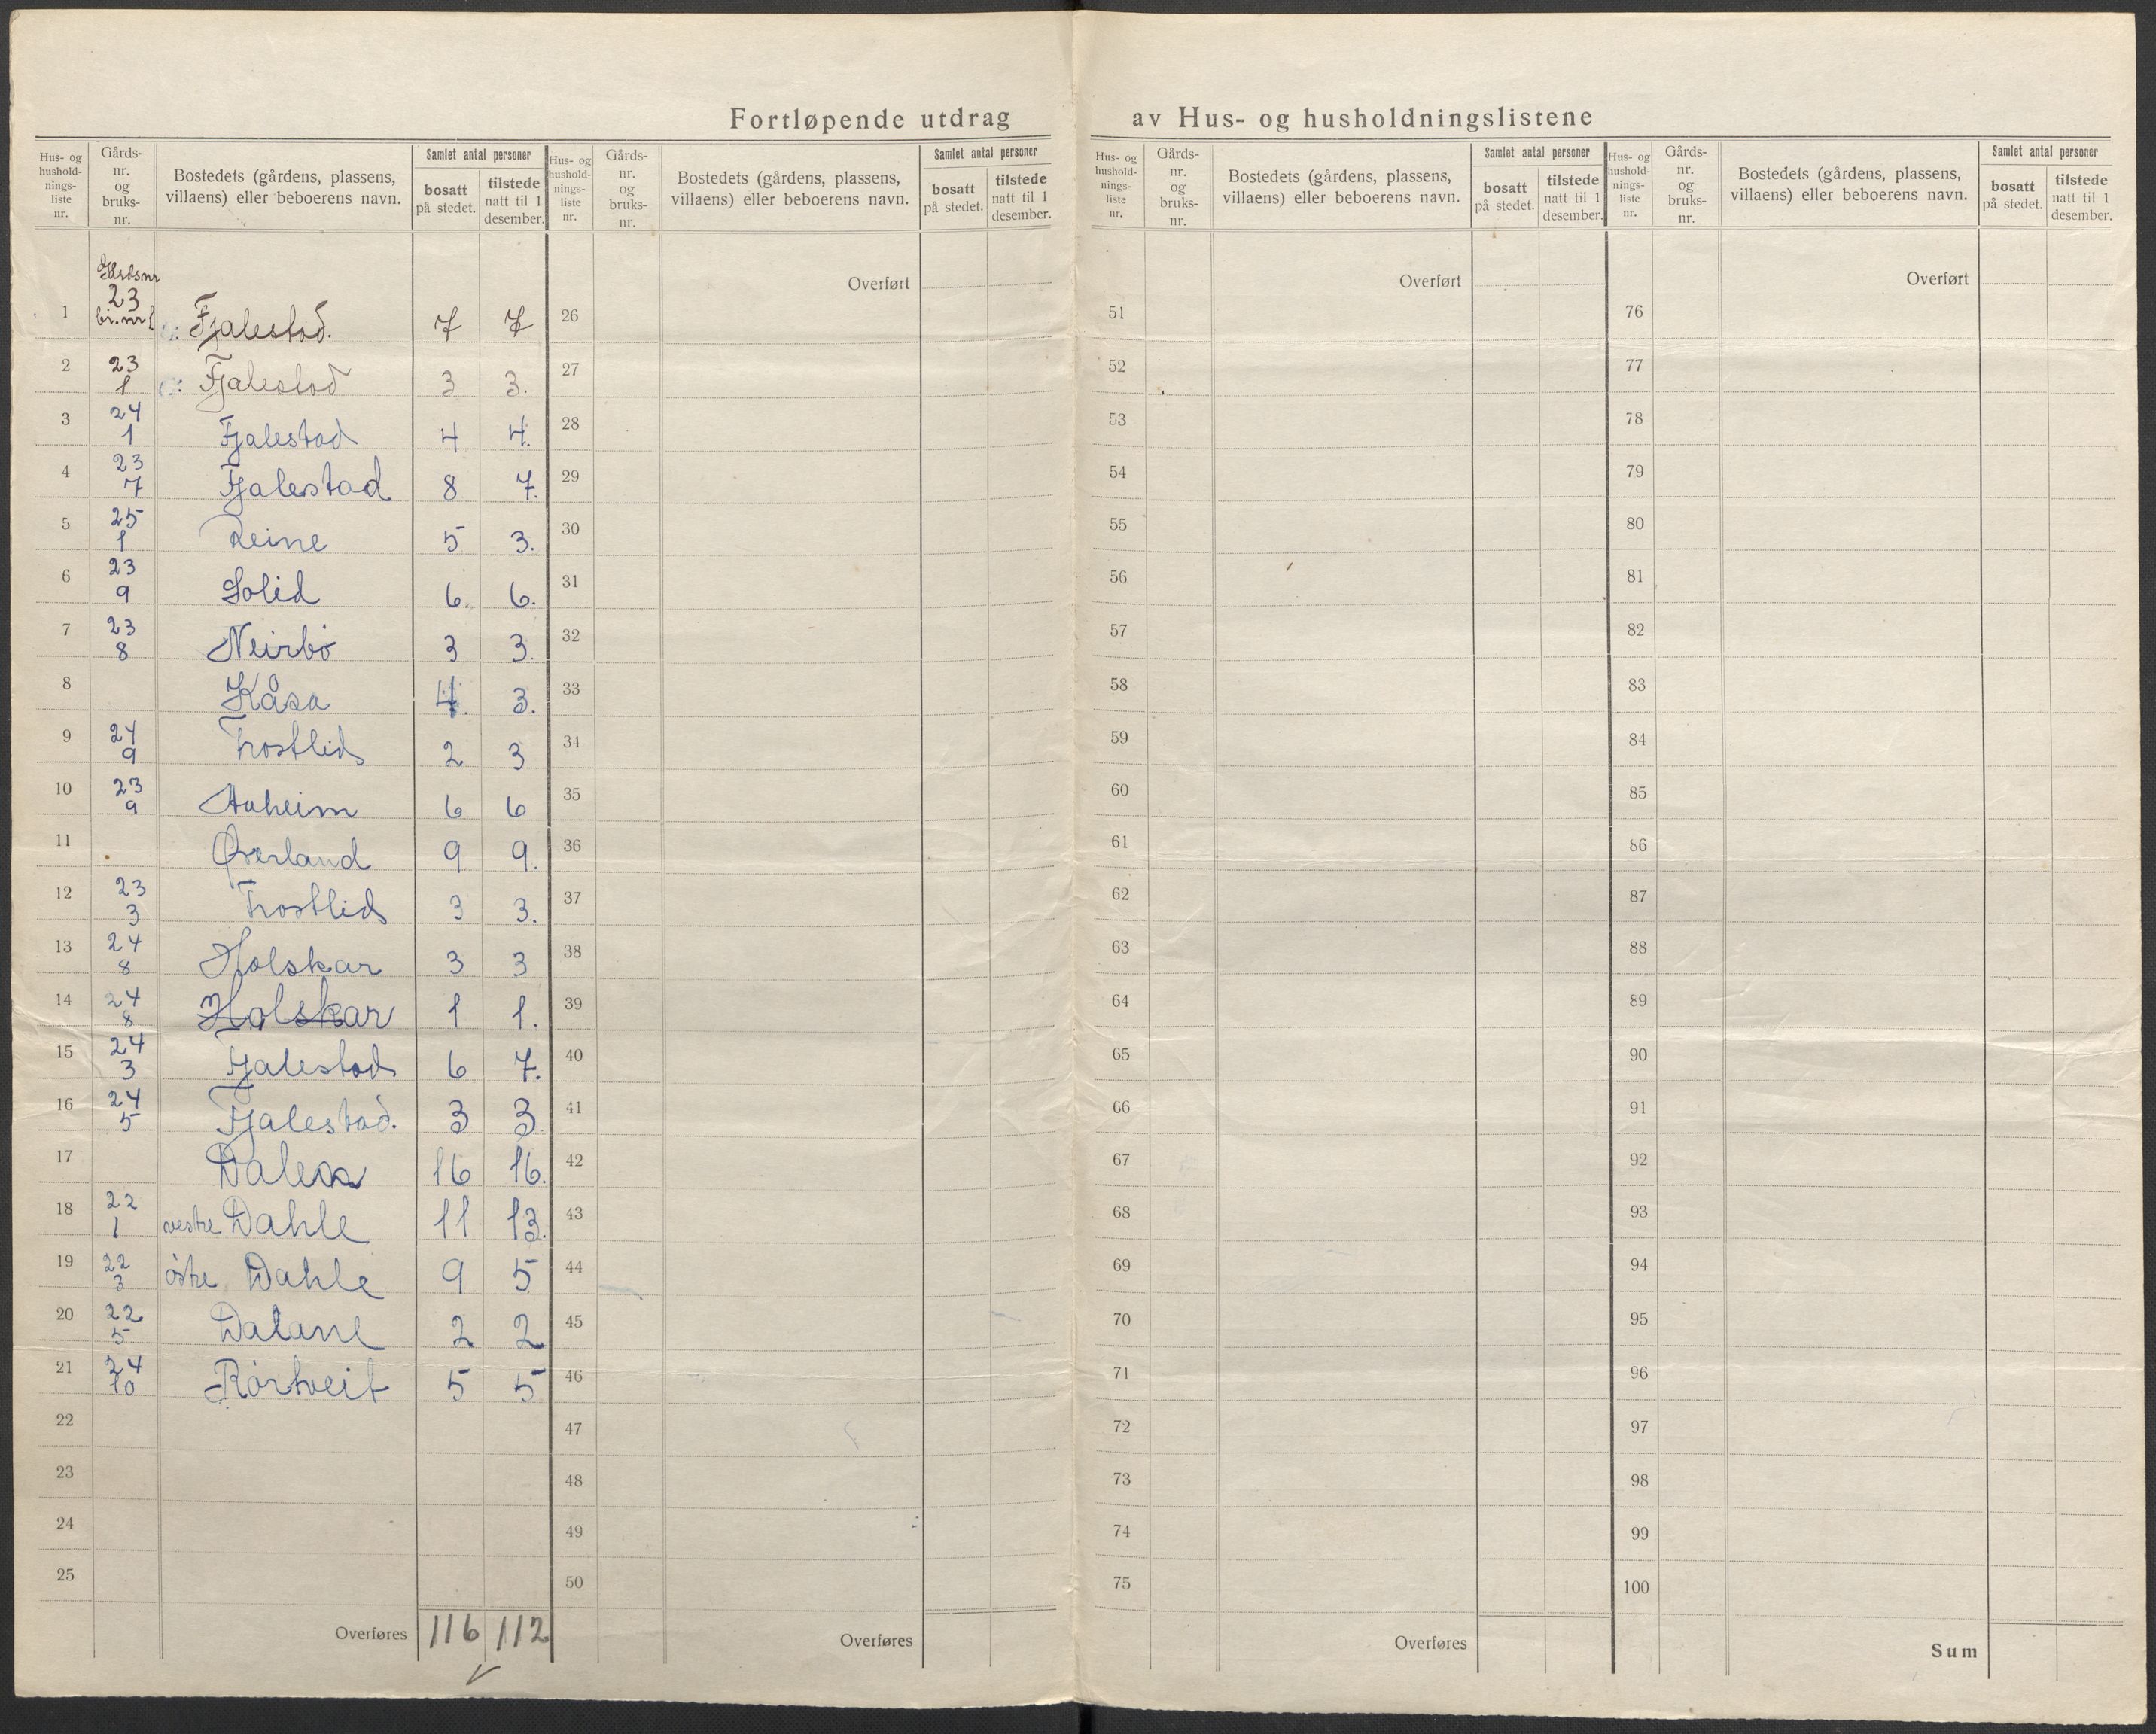 Fortløpende utdrag av Hus- og husholdningslistene
Hus- og husholdnings-liste nr. | Gårds-nr. og bruks-nr. | Bostedets (gårdens, plassens, villaens) eller beboerens navn. | Samlet antal personer | bosatt på stedet. | tilstede natt til 1 desember.
Hus- og husholdnings-liste nr. | Gårds-nr. og bruks-nr. | Bostedets (gårdens, plassens, villaens) eller beboerens navn. | Samlet antal personer | bosatt på stedet. | tilstede natt til 1 desember.
Hus- og husholdnings-liste nr. | Gårds-nr. og bruks-nr. | Bostedets (gårdens, plassens, villaens) eller beboerens navn. | Samlet antal personer | bosatt på stedet. | tilstede natt til 1 desember.
Hus- og husholdnings-liste nr. | Gårds-nr. og bruks-nr. | Bostedets (gårdens, plassens, villaens) eller beboerens navn. | Samlet antal personer | bosatt på stedet. | tilstede natt til 1 desember.
1 Gårdsnr 23 br.nr 1 Fjalestad. 7 7
2 23 1 Fjalestad 3 3.
3 24 1 Fjalestad 4 4.
4 23 7 Fjalestad 8 7.
5 25 1 Reine 5 3.
6 23 9 Solid 6. 6.
7 23 8 Neirbö 3 3.
8 Kåsa 4. 3.
9 24 9 Trostlid 2 3
10 23 9 Aaheim 6 6
11 Øverland 9 9.
12 23 3 Trostlid 3 3.
13 24 8 Holskar 3 3
14 24 8 Holskar 1 1.
15 24 3 Fjalestad 6 7.
16 24 5 Fjalestad. 3 3.
17 Dalen 16 16.
18 22 1 vestre Dahle 11 13.
19 22 3 östre Dahle 9 5
20 22 5 Dalane 2 2
21 24 10 Rörtveit 5 5
22
23
24
25
Overføres 116 112
Overført
26
27
28
29
30
31
32
33
34
35
36
37
38
39
40
41
42
43
44
45
46
47
48
49
50
Overføres
Overført
51
52
53
54
55
56
57
58
59
60
61
62
63
64
65
66
67
68
69
70
71
72
73
74
75
Overføres
Overført
76
77
78
79
80
81
82
83
84
85
86
87
88
89
90
91
92
93
94
95
96
97
98
99
100
Sum